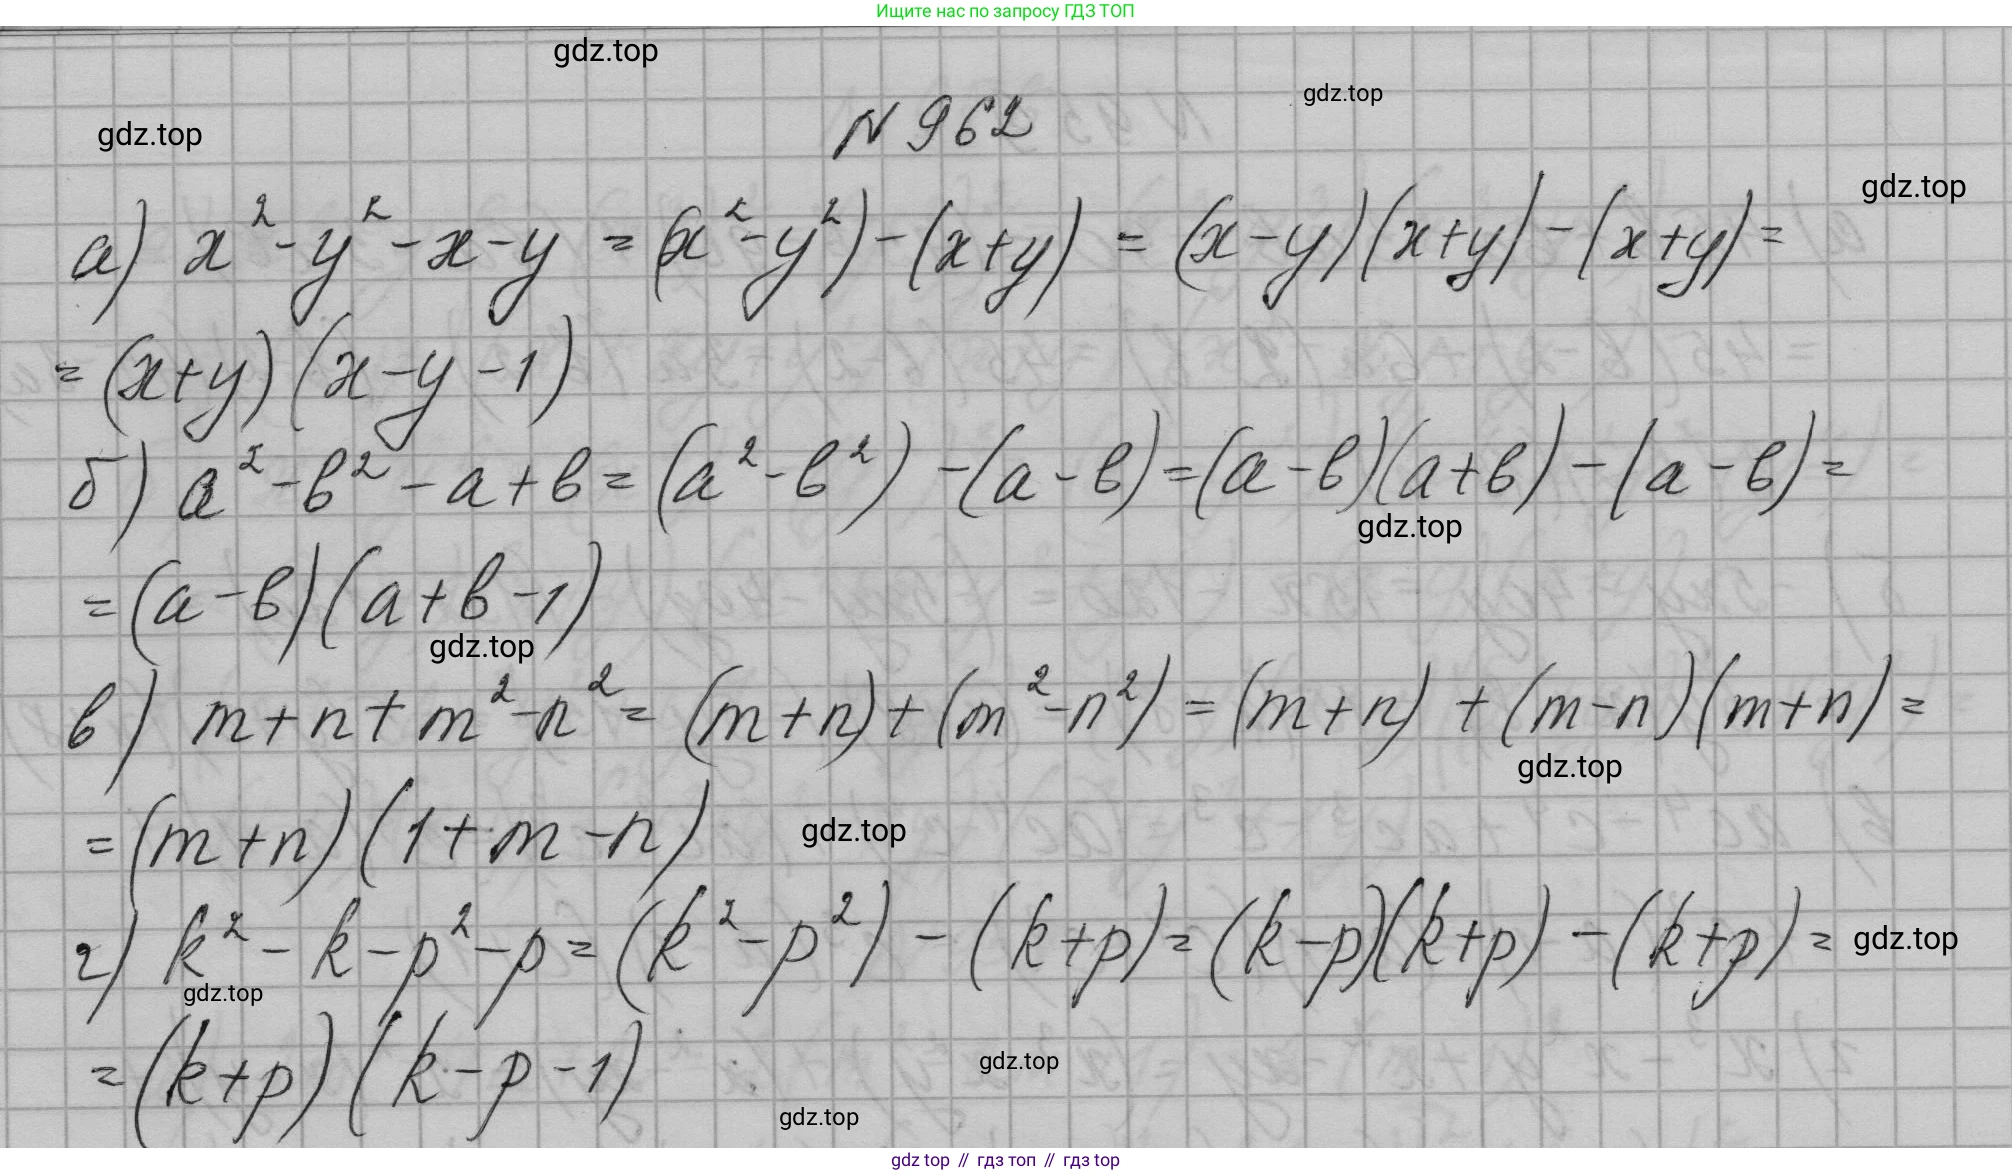 Ищите нас по запросу ГДЗ ТОП
gdz.top
gdz.top
N 962
gdz.top
gdz.top
а) x² - y² - x - y = (x² - y²) - (x + y) = (x - y)(x + y) - (x + y) =
= (x + y)(x - y - 1)
б) a² - в² - a + в = (a² - в²) - (a - в) = (a - в)(a + в) - (a - в) =
gdz.top
= (a - в)(a + в - 1)
gdz.top
в) m + n + m² - n² = (m + n) + (m² - n²) = (m + n) + (m - n)(m + n) =
gdz.top
= (m + n)(1 + m - n)
gdz.top
г) k² - k - p² - p = (k² - p²) - (k + p) = (k - p)(k + p) - (k + p) =
gdz.top
gdz.top
= (k + p)(k - p - 1)
gdz.top
gdz.top
gdz top // гдз топ // гдз top